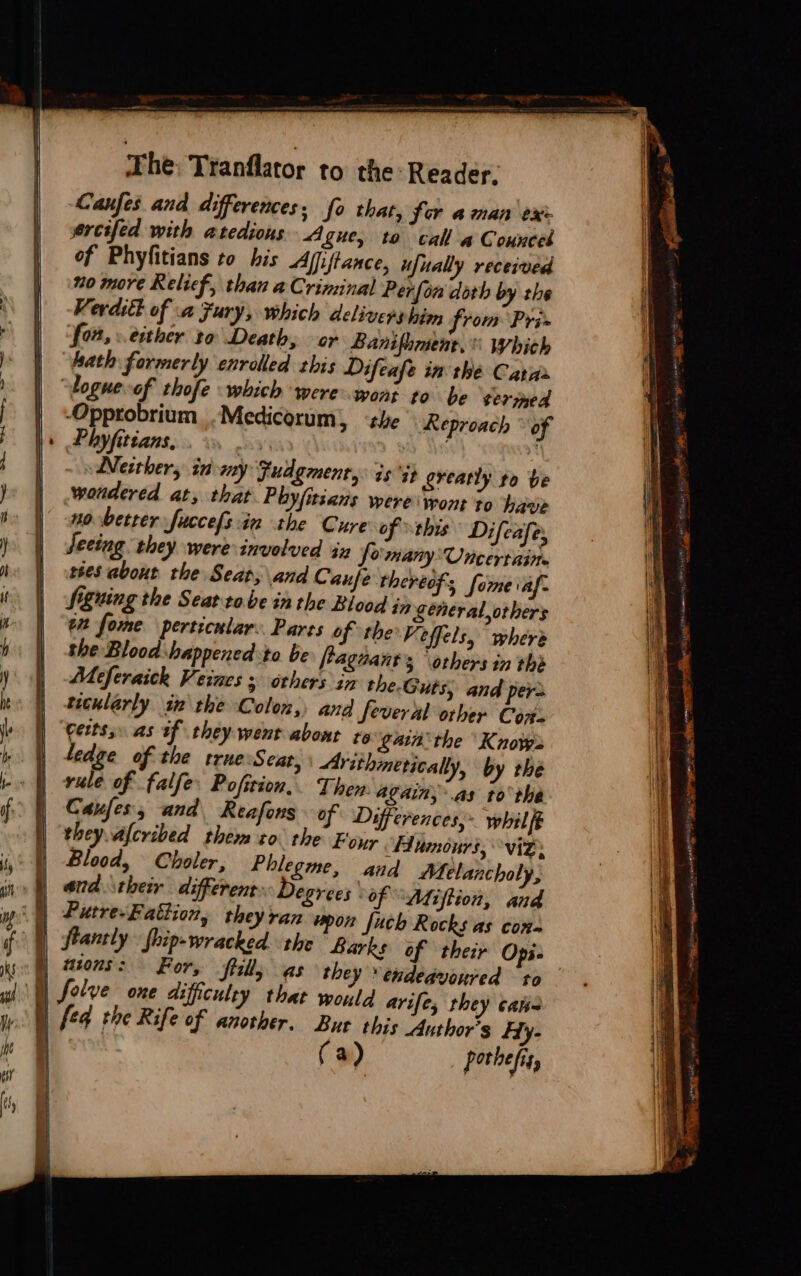 The Tranſlator to the Reader.
Cauſes and differences; ſo that, for a man ex-
erciſed with a tedious Ague, to call a Councel
of Phyſitians to his Aſſiſtance, uſually received
no more Relief, than a Criminal Perſon doth by the
Verdict of a Jury, which delivers him from Pri-
ſon, either to Death, or Baniſhment. Which
hath formerly enrolled this Diſeaſe in the Cata-
logue of thoſe which were wont to be termed
Opprobrium Medicorum, the Reproach of
Phyſitians.
Neither, in my Judgment, is it greatly to be
wondered at, that Phyſitians were wont to have
no better ſucceſs in the Cure of this Diſeaſe,
ſeeing they were involved in ſo many Uncertain-
ties about the Seat, and Cauſe thereof; ſome aſ-
ſigning the Seat to be in the Blood in general, others
in ſome perticular Parts of the Veſſels, where
the Blood happened to be ſtagnant; others in the
Meſeraick Veines; others in the Guts, and per-
ticularly in the Colon, and ſeveral other Con-
ceits, as if they went about to gain the Know-
ledge of the true Seat, Arithmetically, by the
rule of falſe Poſition. Then again, as to the
Cauſes, and Reaſons of Differences, whilſt
they aſcribed them to the Four Humours, viz.
Blood, Choler, Phlegme, and Melancholy,
and their different Degrees of Miſtion, and
Putre-Faction, they ran upon ſuch Rocks as con-
ſtantly ſhip-wracked the Barks of their Opi-
nions: For, ſtill, as they endeavoured to
ſolve one difficulty that would ariſe, they cau-
ſed the Riſe of another. But this Author's Hy-
(a) potheſis,